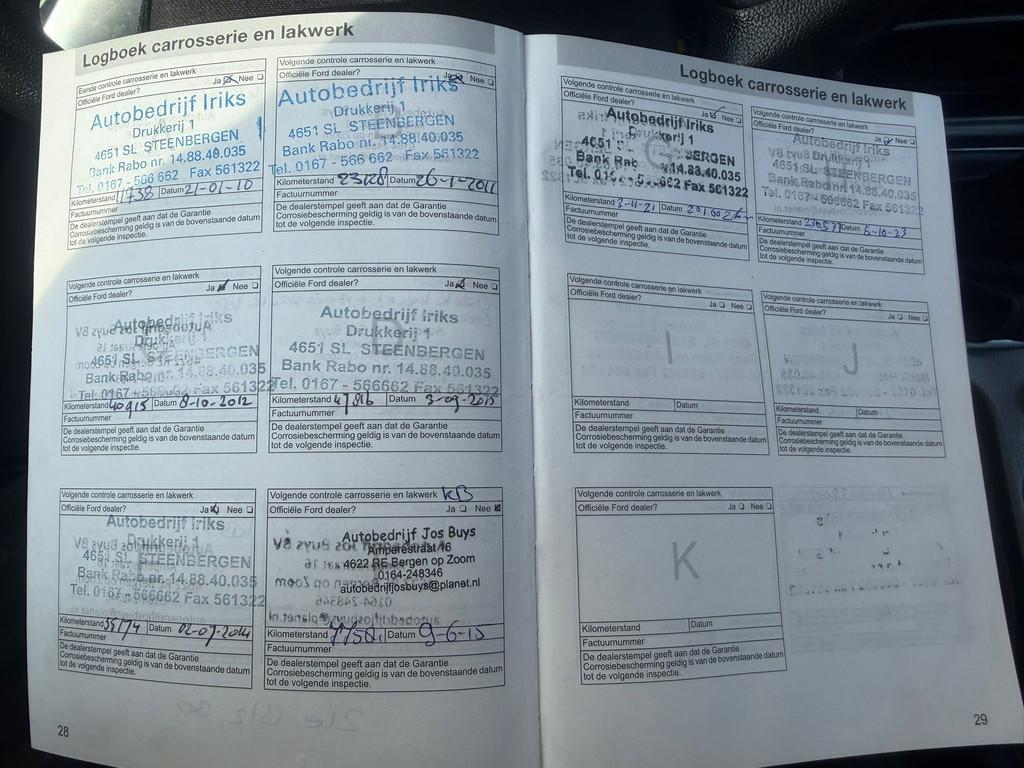 Logboek carrosserie en lakwerk
Eerste controle carrosserie en lakwerk
Officiële Ford dealer? Ja Nee
Autobedrijf Iriks
Drukkerij 1
4651 SL STEENBERGEN
Bank Rabo nr. 14.88.40.035
Tel. 0167 - 566 662 Fax 561322
Kilometerstand 1738 Datum 21-01-10
Factuurnummer
De dealerstempel geeft aan dat de Garantie
Corrosiebescherming geldig is van de bovenstaande datum
tot de volgende inspectie.
Volgende controle carrosserie en lakwerk
Officiële Ford dealer? Ja Nee
Autobedrijf Iriks
Drukkerij 1
4651 SL STEENBERGEN
Bank Rabo nr. 14.88.40.035
Tel. 0167 - 566 662 Fax 561322
Kilometerstand Datum 26-1-2011
Factuurnummer
De dealerstempel geeft aan dat de Garantie
Corrosiebescherming geldig is van de bovenstaande datum
tot de volgende inspectie.
Volgende controle carrosserie en lakwerk
Officiële Ford dealer? Ja Nee
Autobedrijf Iriks
Drukkerij 1
4651 SL STEENBERGEN
Bank Rabo nr. 14.88.40.035
Tel. 0167 - 566662 Fax 561322
Kilometerstand 40915 Datum 8-10-2012
Factuurnummer
De dealerstempel geeft aan dat de Garantie
Corrosiebescherming geldig is van de bovenstaande datum
tot de volgende inspectie.
Volgende controle carrosserie en lakwerk
Officiële Ford dealer? Ja Nee
Autobedrijf Iriks
Drukkerij 1
4651 SL STEENBERGEN
Bank Rabo nr. 14.88.40.035
Tel. 0167 - 566662 Fax 561322
Kilometerstand Datum 3-09-2013
Factuurnummer
De dealerstempel geeft aan dat de Garantie
Corrosiebescherming geldig is van de bovenstaande datum
tot de volgende inspectie.
Volgende controle carrosserie en lakwerk
Officiële Ford dealer? Ja Nee
Autobedrijf Iriks
Drukkerij 1
4651 SL STEENBERGEN
Bank Rabo nr. 14.88.40.035
Tel. 0167 - 566662 Fax 561322
Kilometerstand 55174 Datum 02-07-2014
Factuurnummer
De dealerstempel geeft aan dat de Garantie
Corrosiebescherming geldig is van de bovenstaande datum
tot de volgende inspectie.
Volgende controle carrosserie en lakwerk KB
Officiële Ford dealer? Ja Nee
Autobedrijf Jos Buys
Amperestraat 16
4622 RE Bergen op Zoom
0164-248346
autobedrijfjosbuys@planet.nl
Kilometerstand Datum 9-6-15
Factuurnummer
De dealerstempel geeft aan dat de Garantie
Corrosiebescherming geldig is van de bovenstaande datum
tot de volgende inspectie.
28
Logboek carrosserie en lakwerk
Volgende controle carrosserie en lakwerk
Officiële Ford dealer? Ja Nee
G
Autobedrijf Iriks
Drukkerij 1
4651 BERGEN
Bank Rab 14.88.40.035
Tel. 0167 662 Fax 561322
Kilometerstand Datum
Factuurnummer
De dealerstempel geeft aan dat de Garantie
Corrosiebescherming geldig is van de bovenstaande datum
tot de volgende inspectie.
Volgende controle carrosserie en lakwerk
Officiële Ford dealer? Ja Nee
Autobedrijf Iriks
Drukkerij 1
4651 SL STEENBERGEN
Bank Rabo nr. 14.88.40.035
Tel. 0167 - 566662 Fax 561322
Kilometerstand Datum 6-10-23
Factuurnummer
De dealerstempel geeft aan dat de Garantie
Corrosiebescherming geldig is van de bovenstaande datum
tot de volgende inspectie.
Volgende controle carrosserie en lakwerk
Officiële Ford dealer? Ja Nee
I
Kilometerstand Datum
Factuurnummer
De dealerstempel geeft aan dat de Garantie
Corrosiebescherming geldig is van de bovenstaande datum
tot de volgende inspectie.
Volgende controle carrosserie en lakwerk
Officiële Ford dealer? Ja Nee
J
Kilometerstand Datum
Factuurnummer
De dealerstempel geeft aan dat de Garantie
Corrosiebescherming geldig is van de bovenstaande datum
tot de volgende inspectie.
Volgende controle carrosserie en lakwerk
Officiële Ford dealer? Ja Nee
K
Kilometerstand Datum
Factuurnummer
De dealerstempel geeft aan dat de Garantie
Corrosiebescherming geldig is van de bovenstaande datum
tot de volgende inspectie.
29